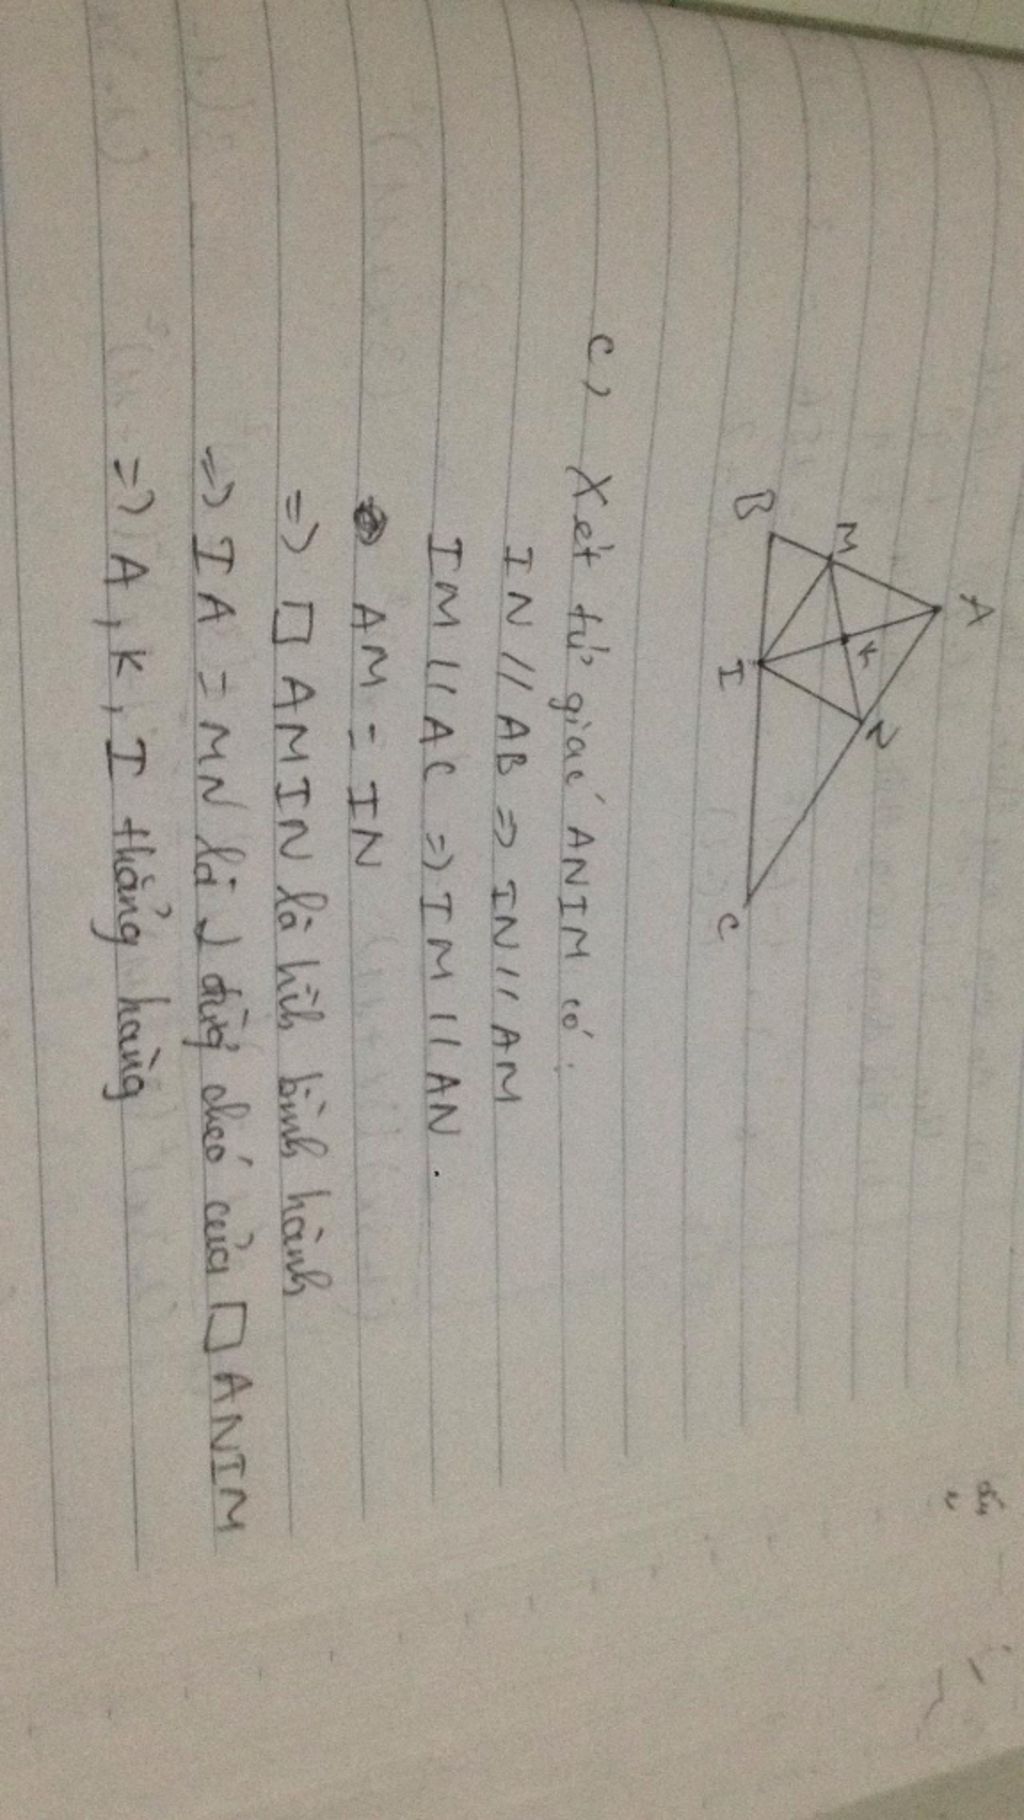 A
M
N
K
B
I
C
c, Xét tứ giác ANIM có:
IN // AB => IN // AM
IM // AC => IM // AN.
AM = IN
=> □ AMIN là hìh bình hành
=> IA = MN là 2 đườg chéo của □ ANIM
=> A, K, I thẳng hàng